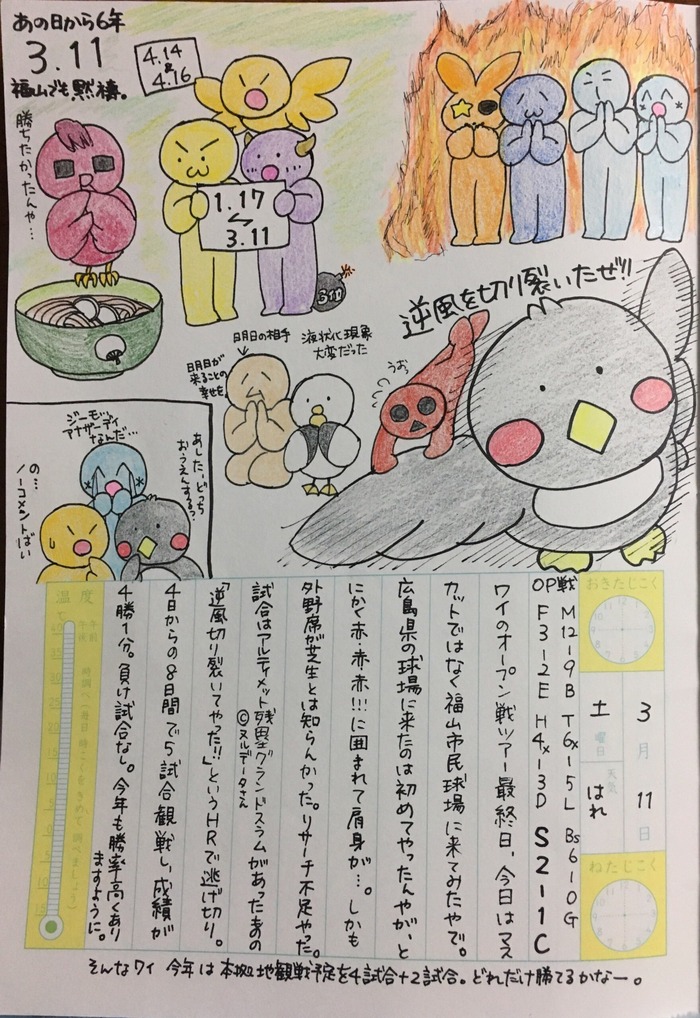 あの日から6年
3.11
福山でも黙祷。
4.14
&
4.16
勝ちたかったんや…
1.17
⇆
3.11
3.11
逆風を切り裂いたぜ!!
明日の相手
明日が
来ることの
幸せを。
液状化現象
大変だった
うおっ
ジーモ…
アナザーデイ
なんだ…
あした、どっち
おうえんするの?
の…
ノーコメントばい
おきたじこく
3月11日
土曜日
天気 はれ
ねたじこく
OP戦 M12-9B T6x-5L Bs6-10G
F3-2E H4x-3D S2-1C
ワイのオープン戦ツアー最終日、今日はマス
カットではなく福山市民球場に来てみたやで。
広島県の球場に来たのは初めてやったんやが、と
にかく赤・赤・赤!!!に囲まれて肩身が…。しかも
外野席が芝生とは知らんかった。リサーチ不足やった。
試合はアルティメット残塁グランドスラムがあったあの
©ヌルデータさん
「逆風切り裂いてやった!!」というHRで逃げ切り。
4日からの8日間で5試合観戦し、成績が
4勝1分。負け試合なし。今年も勝率高くあり
ますように。
温度
午前
午後
時調べ(毎日時こくをきめて調べましょう)
そんなワイ 今年は本拠地観戦予定を4試合+2試合。どれだけ勝てるかなー。